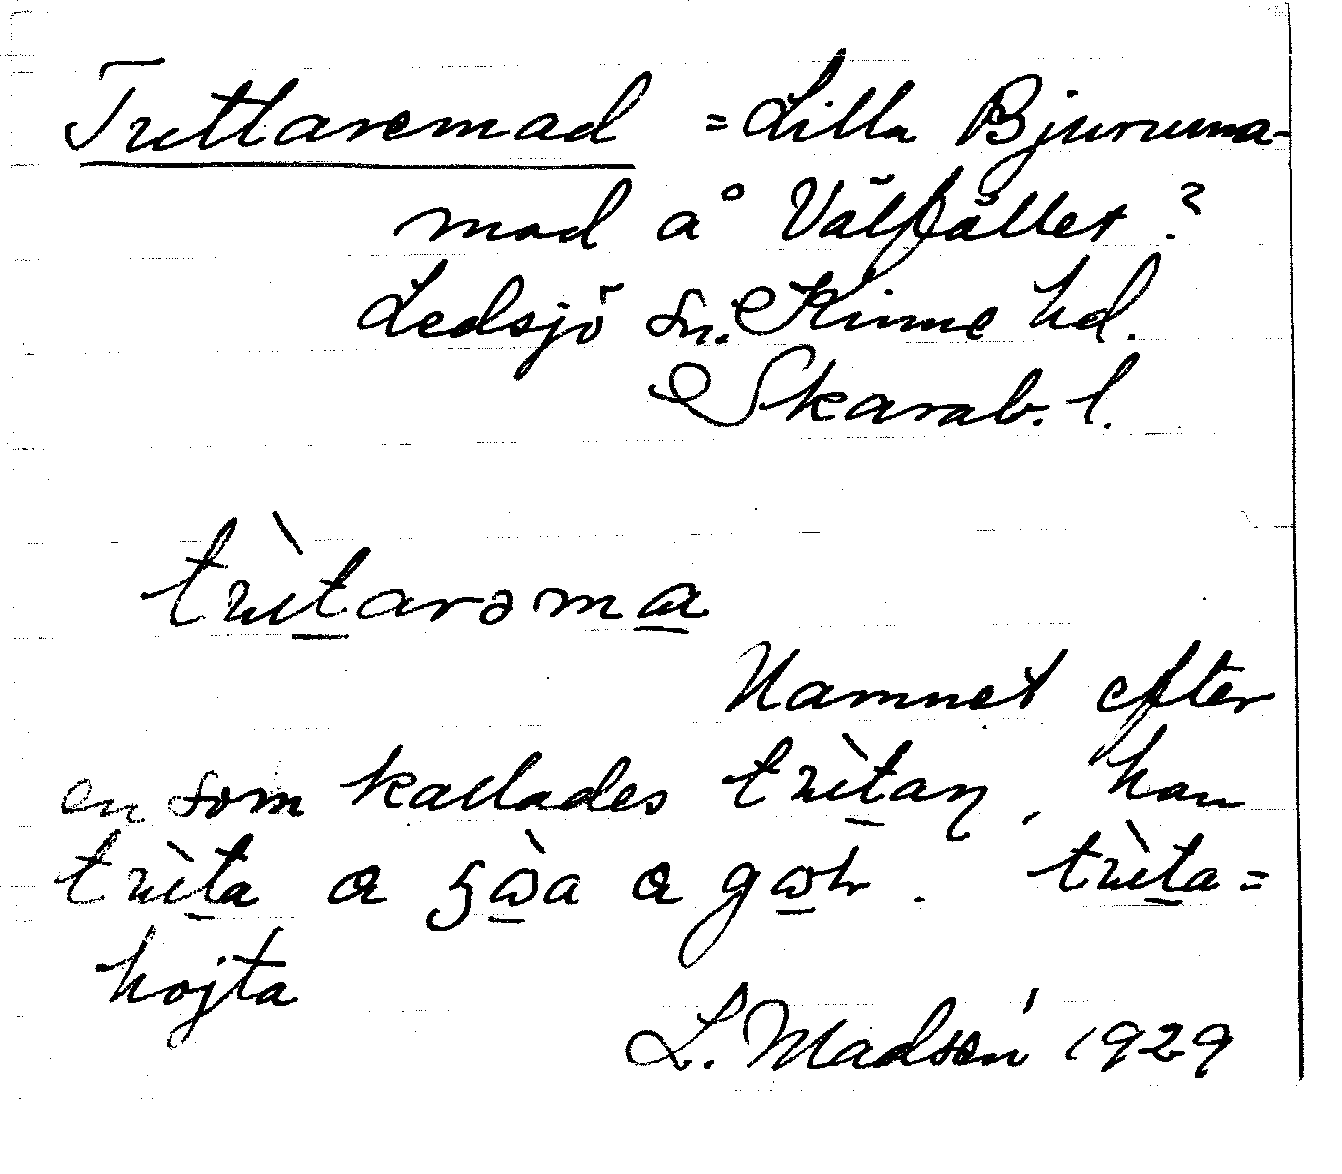 Truttaremad = Lilla Bjuruma-
mad å Vålfållet?
Ledsjö sn. Kinne hd.
Skarab. l.
trùtarəmɑ
Namnet efter
en som kallades trùtaŋ, han
trùta
trùta=
hojta
L. Madsén 1929